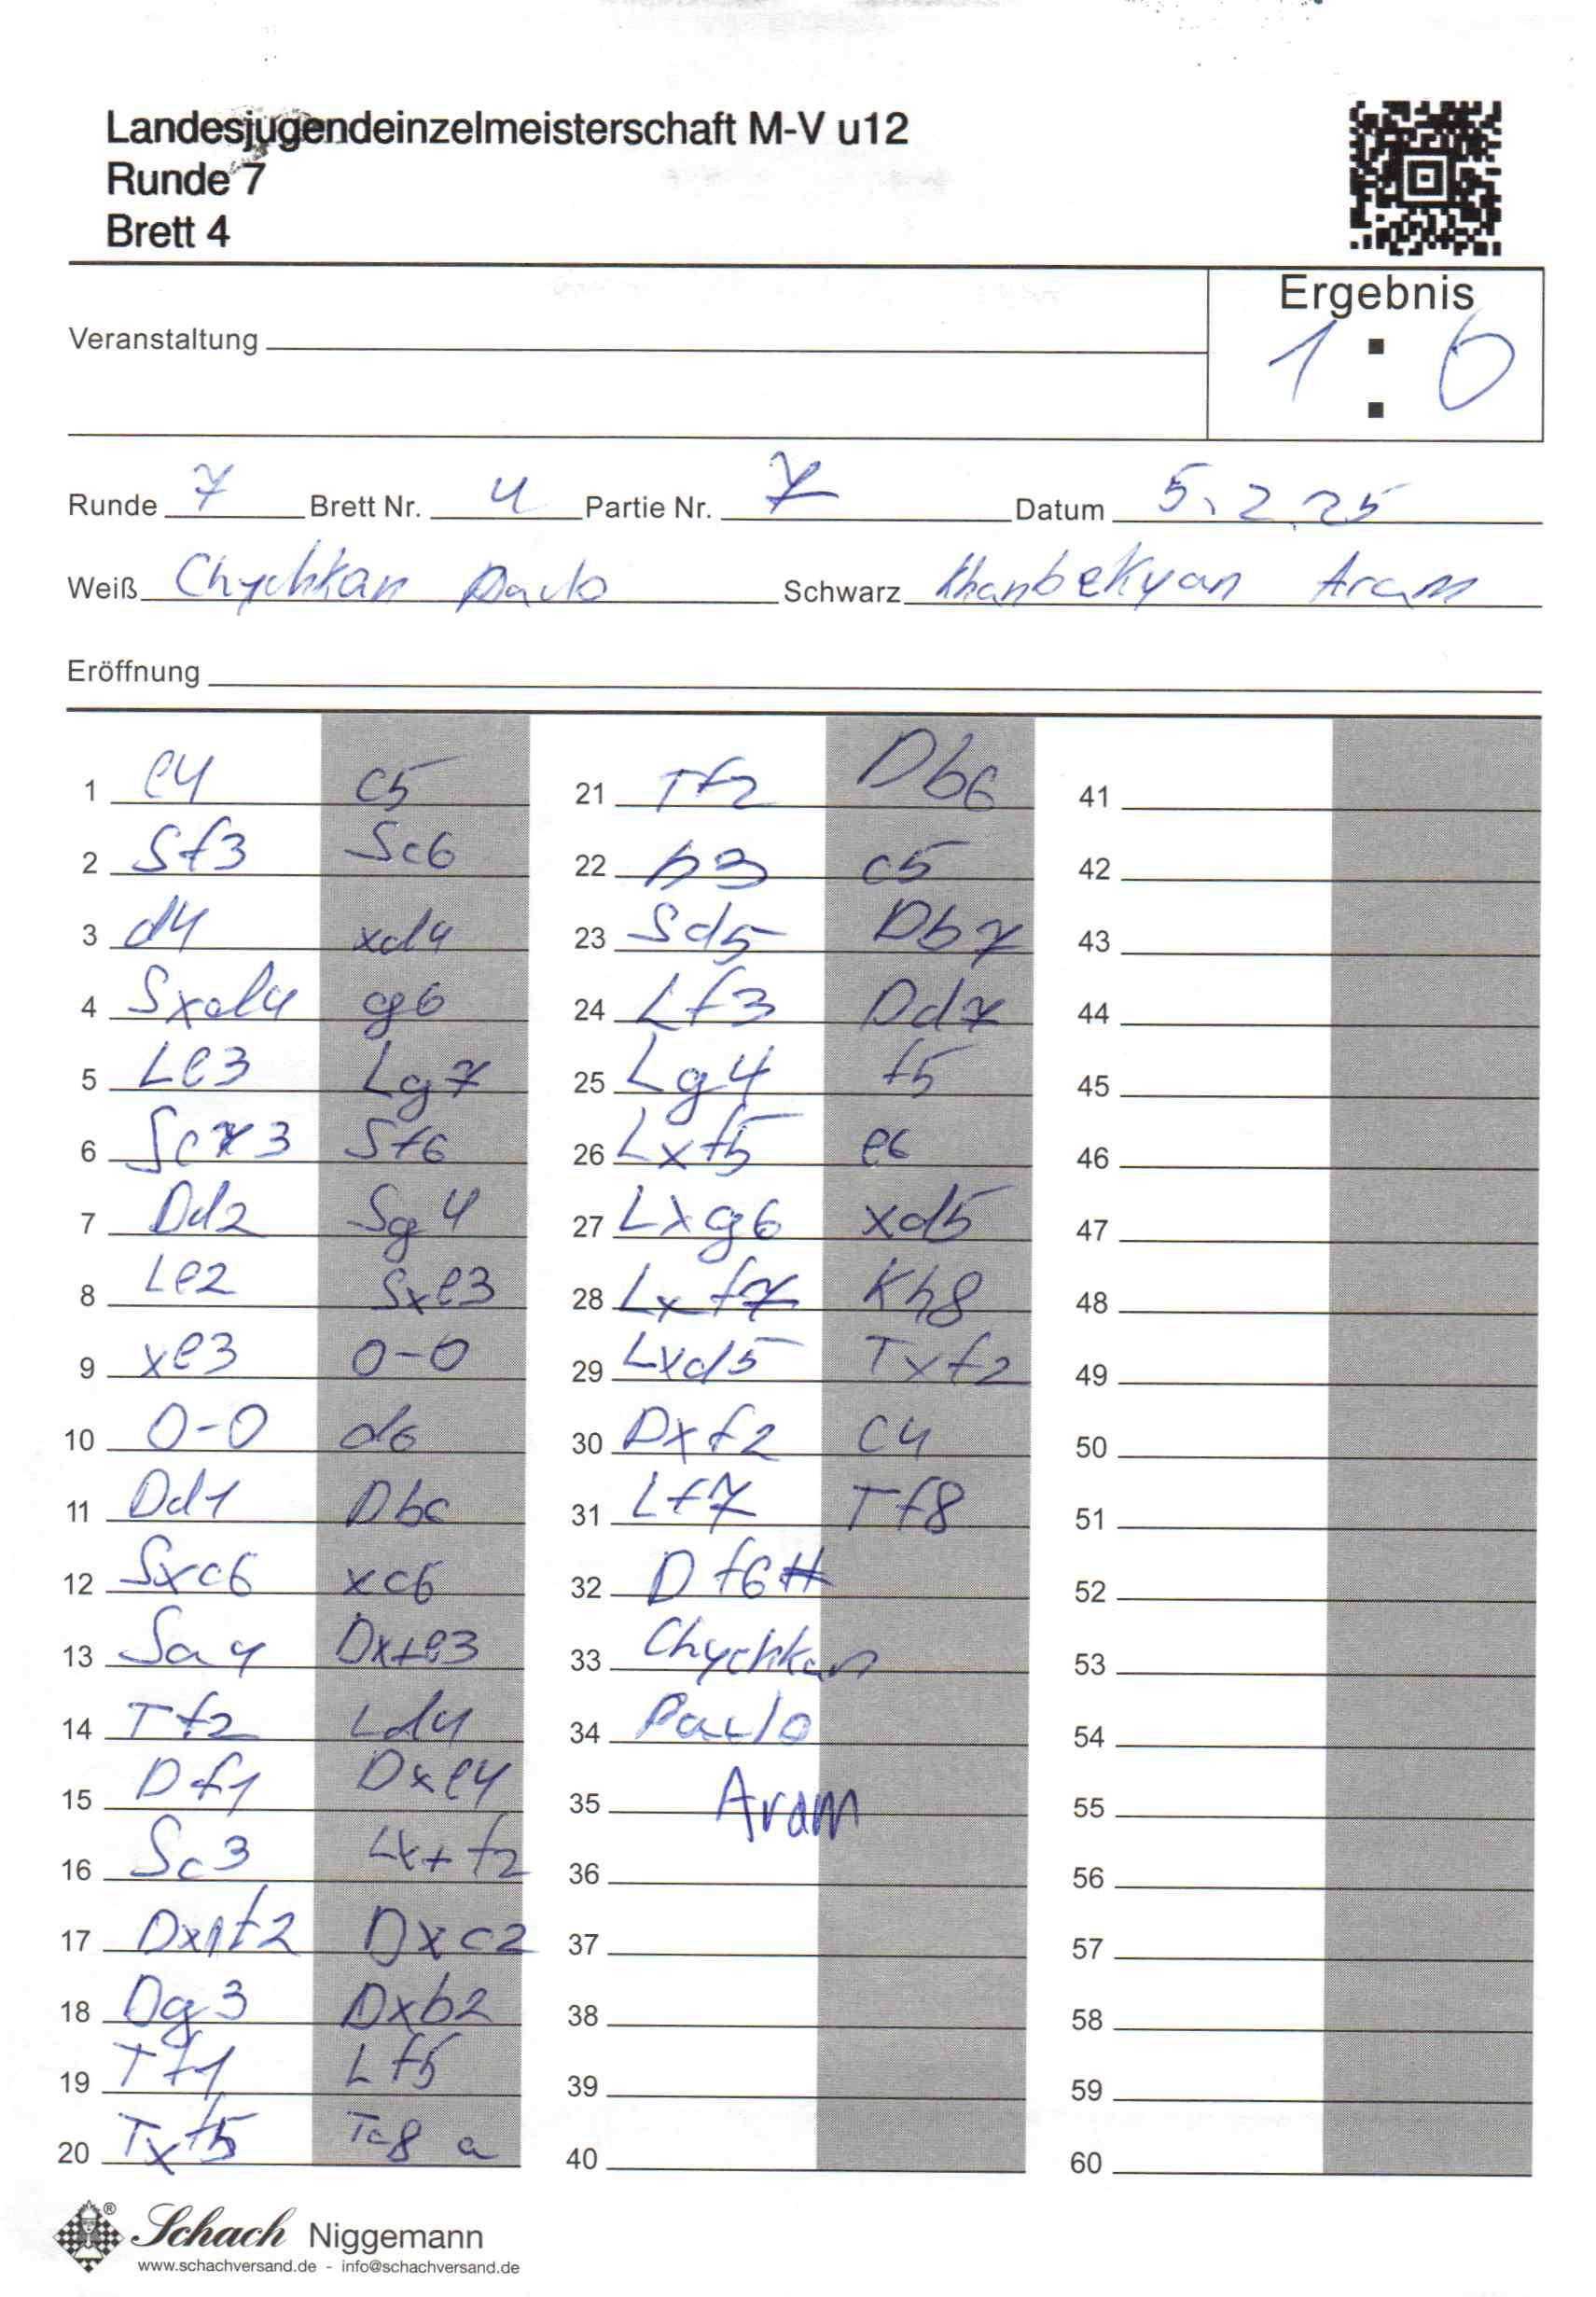 Landesjugendeinzelmeisterschaft M-V u12
Runde 7
Brett 4
Ergebnis
1 : 0
Veranstaltung
Runde 7 Brett Nr. 4 Partie Nr. 7 Datum 5.2.25
Weiß Chychkan Pavlo Schwarz Khanbekyan Aram
Eröffnung
1 e4 c5 21 Tf2 Db6 41
2 Sf3 Sc6 22 b3 c5 42
3 d4 xd4 23 Sd5 Db7 43
4 Sxd4 g6 24 Lf3 Dd7 44
5 Le3 Lg7 25 Lg4 f5 45
6 Sc3 Sf6 26 Lxf5 e6 46
7 Dd2 Sg4 27 Lxg6 xd5 47
8 Le2 Sxe3 28 Lxf7 Kh8 48
9 xe3 0-0 29 Lxd5 Txf2 49
10 0-0 d6 30 Dxf2 c4 50
11 Dd1 Db6 31 Lf7 Tf8 51
12 Sxc6 xc6 32 Df6# 52
13 Sa4 Dx+e3 33 Chychkan 53
14 Tf2 Ld4 34 Pavlo 54
15 Df1 Dxe4 35 Aram 55
16 Sc3 Lx+f2 36 56
17 Dxf2 Dxc2 37 57
18 Dg3 Dxb2 38 58
19 Tf1 Lf5 39 59
20 Txf5 Ta8 a 40 60
Schach Niggemann
www.schachversand.de - info@schachversand.de